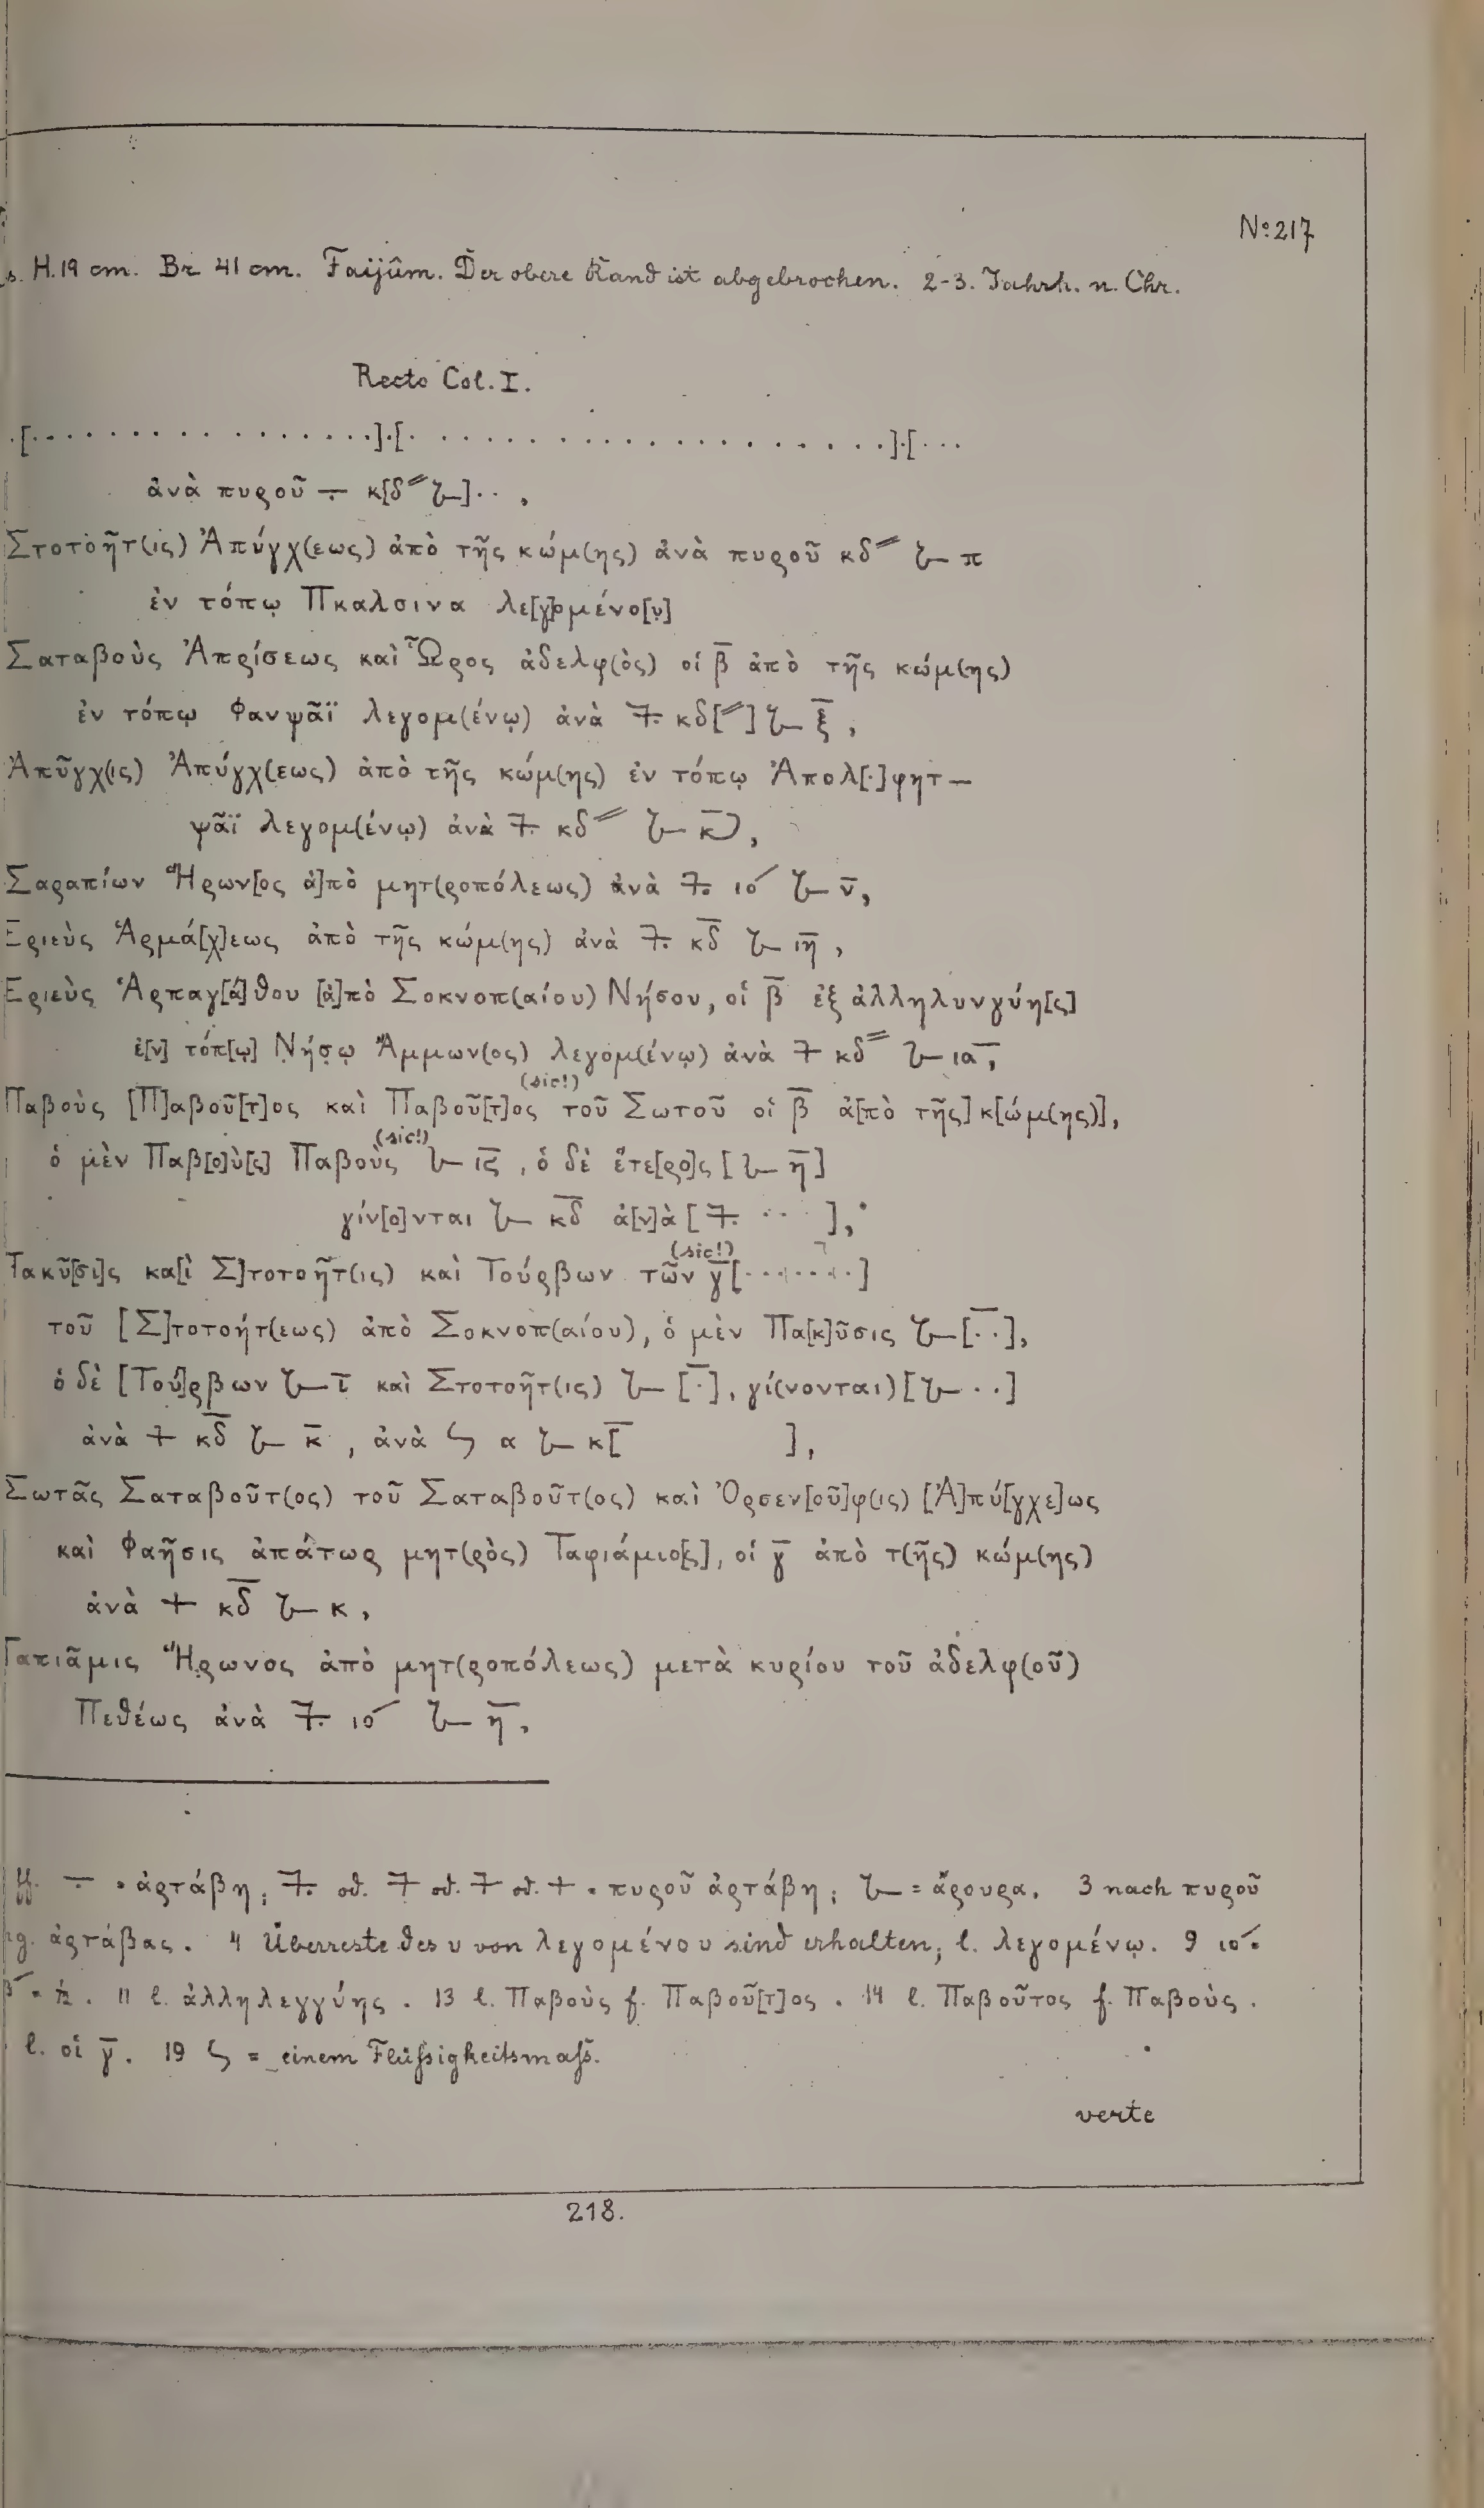 № 217
H. 19 cm. Br 41 cm. Faijûm. Der obere Rand ist abgebrochen. 2-3. Jahrh. n. Chr.
Recto Col. I.
·[· · · · · · · · · · · · · · ·]·[· · · · · · · · · · · · · · · · · · · ·]·[· · ·
ἀνὰ πυροῦ ÷ κ[δ″ Ⳑ]· · ,
Στοτοῆτ(ις) Ἀπύγχ(εως) ἀπὸ τῆς κώμ(ης) ἀνὰ πυροῦ κδ″ Ⳑ π
ἐν τόπῳ Πκαλσινα λε[γ]ομένο[υ]
Σαταβοὺς Ἀπρίσεως καὶ Ὧρος ἀδελφ(ὸς) οἱ β̅ ἀπὸ τῆς κώμ(ης)
ἐν τόπῳ Φανψᾶϊ λεγομ(ένῳ) ἀνὰ 7̶. κδ[″] Ⳑ ξ̅ ,
Ἀπῦγχ(ις) Ἀπύγχ(εως) ἀπὸ τῆς κώμ(ης) ἐν τόπῳ Ἀπολ[·]φητ—
ψᾶϊ λεγομ(ένῳ) ἀνὰ 7̶. κδ″ Ⳑ κ̅ ,
Σαραπίων Ἥρων[ος ἀ]πὸ μητ(ροπόλεως) ἀνὰ 7̶. ιό Ⳑ ν̅,
Εριεὺς Ἁρμά[χ]εως ἀπὸ τῆς κώμ(ης) ἀνὰ 7̶. κδ̅ Ⳑ ιη̅ ,
Εριεὺς Ἁρπαγ[ά]θου [ἀ]πὸ Σοκνοπ(αίου) Νήσου, οἱ β̅ ἐξ ἀλληλυνγύη[ς]
ἐ[ν] τόπ[ῳ] Νήσῳ Ἄμμων(ος) λεγομ(ένῳ) ἀνὰ 7̶ κδ″ Ⳑ ια̅,
(sic!)
Παβοὺς [Π]αβοῦ[τ]ος καὶ Παβοῦ[τ]ος τοῦ Σωτοῦ οἱ β̅ ἀ[πὸ τῆς] κ[ώμ(ης)],
(sic!)
ὁ μὲν Παβ[ο]ὺ[ς] Παβοὺς Ⳑ ις̅ , ὁ δὲ ἕτε[ρο]ς [Ⳑ η̅]
γίν[ο]νται Ⳑ κδ̅ ἀ[ν]ὰ [7̶. · · ],
(sic!)
Τακῦ[σι]ς κα[ὶ Σ]τοτοῆτ(ις) καὶ Τούρβων τῶν γ̅ [· · · · · · ·]
τοῦ [Σ]τοτοήτ(εως) ἀπὸ Σοκνοπ(αίου), ὁ μὲν Πα[κ]ῦσις Ⳑ [· ·],
ὁ δὲ [Τού]ρβων Ⳑ ι̅ καὶ Στοτοῆτ(ις) Ⳑ [·], γί(νονται) [Ⳑ · ·]
ἀνὰ + κδ̅ Ⳑ κ̅ , ἀνὰ ϟ α Ⳑ κ[ ],
Σωτᾶς Σαταβοῦτ(ος) τοῦ Σαταβοῦτ(ος) καὶ Ὀρσεν[οῦ]φ(ις) [Ἀ]πύ[γχε]ως
καὶ Φαῆσις ἀπάτωρ μητ(ρὸς) Ταφιάμιο[ς], οἱ γ̅ ἀπὸ τ(ῆς) κώμ(ης)
ἀνὰ + κδ̅ Ⳑ κ ,
Ταπιᾶμις Ἥρωνος ἀπὸ μητ(ροπόλεως) μετὰ κυρίου τοῦ ἀδελφ(οῦ)
Πεθέως ἀνὰ 7̶. ιό Ⳑ η̅ ,
÷ = ἀρτάβη; 7̶. od. 7̶ od. 7̶ od. + = πυροῦ ἀρτάβη; Ⳑ = ἄρουρα. 3 nach πυροῦ
ἀρτάβας. 4 Überreste des υ von λεγομένου sind erhalten; l. λεγομένῳ. 9 ιό =
½. 11 l. ἀλληλεγγύης. 13 l. Παβοὺς f. Παβοῦ[τ]ος. 14 l. Παβοῦτος f. Παβοὺς.
l. οἱ γ̅. 19 ϟ = einem Flüssigkeitsmaß.
verte
218.